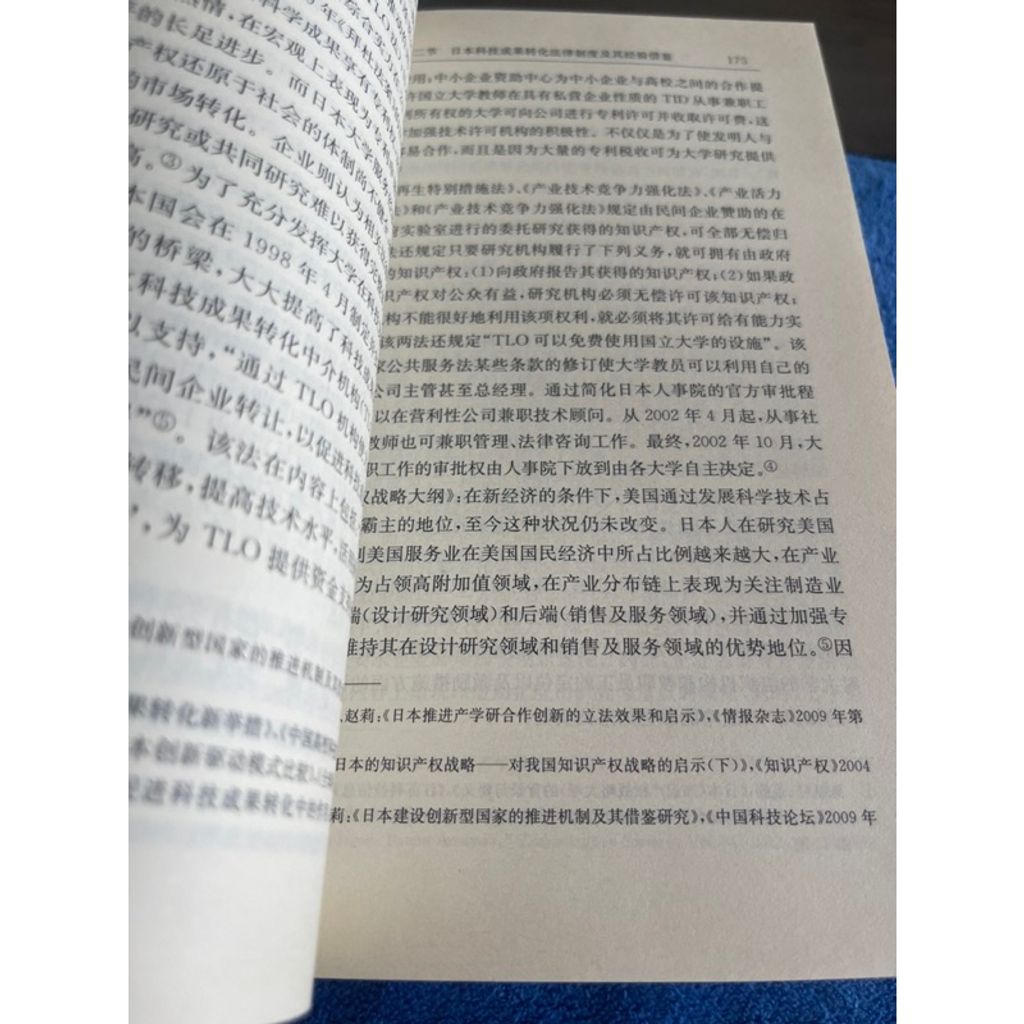 科学成果享有专利
热情,在宏观上表现为
的长足进步。而日本大学服务
产权还原于社会的体制尚不能
的市场转化。企业则认为相关
研究或共同研究难以获得完
高。③为了充分发挥大学在科
本国会在1998年4月制定
的桥梁,大大提高了科技
科技成果转化中介机构
以支持,“通过TLO机构
民间企业转让,以促进科
”⑤。该法在内容上包
转移,提高技术水平,活
,为TLO提供资金支
创新型国家的推进机制及
果转化新举措》,《中国高校
本创新驱动模式比较》
促进科技成果转化中的
二节 日本科技成果转化法律制度及其经验借鉴 175
用;中小企业资助中心为中小企业与高校之间的合作提
许国立大学教师在具有私营企业性质的TLO从事兼职工
利所有权的大学可向公司进行专利许可并收取许可费,这
加强技术许可机构的积极性。不仅仅是为了使发明人与
易合作,而且是因为大量的专利税收可为大学研究提供
再生特别措施法》、《产业技术竞争力强化法》、《产业活力
法》和《产业技术竞争力强化法》规定由民间企业赞助的在
实验室进行的委托研究获得的知识产权,可全部无偿归
法还规定只要研究机构履行了下列义务,就可拥有由政府
的知识产权:(1)向政府报告其获得的知识产权;(2)如果政
识产权对公众有益,研究机构必须无偿许可该知识产权;
构不能很好地利用该项权利,就必须将其许可给有能力实
该两法还规定“TLO可以免费使用国立大学的设施”。该
家公共服务法某些条款的修订使大学教员可以利用自己的
公司主管甚至总经理。通过简化日本人事院的官方审批程
以在营利性公司兼职技术顾问。从2002年4月起,从事社
教师也可兼职管理、法律咨询工作。最终,2002年10月,大
职工作的审批权由人事院下放到由各大学自主决定。④
权战略大纲》:在新经济的条件下,美国通过发展科学技术占
霸主的地位,至今这种状况仍未改变。日本人在研究美国
到美国服务业在美国国民经济中所占比例越来越大,在产业
为占领高附加值领域,在产业分布链上表现为关注制造业
端(设计研究领域)和后端(销售及服务领域),并通过加强专
维持其在设计研究领域和销售及服务领域的优势地位。⑤因
、赵莉:《日本推进产学研合作创新的立法效果和启示》,《情报杂志》2009年第
日本的知识产权战略——对我国知识产权战略的启示(下)》,《知识产权》2004
莉:《日本建设创新型国家的推进机制及其借鉴研究》,《中国科技论坛》2009年